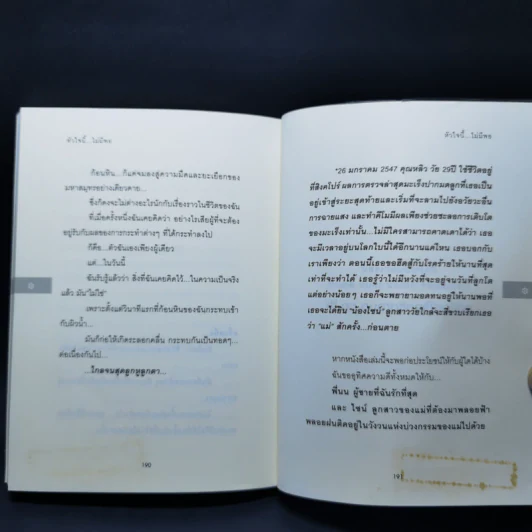 หัวใจนี้...ไม่มีพอ
ก้อนหิน...ก็แค่จมลงสู่ความมืดและยะเยือกของ
มหาสมุทรอย่างเดียวดาย...
ซึ่งก็คงจะไม่ต่างอะไรนักกับเรื่องราวในชีวิตของฉัน
ที่เมื่อครั้งหนึ่งฉันเคยคิดว่า อย่างไรเสียผู้ที่จะต้อง
อยู่รับกับผลของการกระทำต่างๆ ที่ได้กระทำลงไป
ก็คือ...ตัวฉันเองเพียงผู้เดียว
แต่...ในวันนี้
ฉันรับรู้แล้วว่า สิ่งที่ฉันเคยคิดไว้...ในความเป็นจริง
แล้ว มัน"ไม่ใช่"
เพราะตั้งแต่วินาทีแรกที่ก้อนหินของฉันกระทบเข้า
กับผิวน้ำ...
มันก็ก่อให้เกิดระลอกคลื่น กระทบกันเป็นทอดๆ...
ต่อเนื่องกันไป...
...ไกลจนสุดลูกหูลูกตา...
190
หัวใจนี้...ไม่มีพอ
"26 มกราคม 2547 คุณหลิว วัย 29ปี ใช้ชีวิตอยู่
ที่สิงคโปร์ ผลการตรวจล่าสุดมะเร็งปากมดลูกที่เธอเป็น
อยู่เข้าสู่ระยะสุดท้ายและเริ่มที่จะลามไปยังอวัยวะอื่น
การฉายแสง และทำคีโมมีผลเพียงช่วยชะลอการเติบโต
ของมะเร็งเท่านั้น...ไม่มีใครสามารถคาดเดาได้ว่า เธอ
จะมีเวลาอยู่บนโลกใบนี้ได้อีกนานแค่ไหน เธอบอกกับ
เราเพียงว่า ตอนนี้เธอขอฮึดสู้กับโรคร้ายให้นานที่สุด
เท่าที่จะทำได้ เธอรู้ว่าไม่มีหวังที่จะอยู่จนวันที่ลูกโต
แต่อย่างน้อยๆ เธอก็จะพยายามอดทนอยู่ให้นานพอที่
เธอจะได้ยิน "น้องไชน์" ลูกสาววัยใกล้จะสี่ขวบเรียกเธอ
ว่า "แม่" สักครั้ง...ก่อนตาย
หากหนังสือเล่มนี้จะพอก่อประโยชน์ให้กับผู้ใดได้บ้าง
ฉันขออุทิศความดีทั้งหมดให้กับ...
พี่นน ผู้ชายที่ฉันรักที่สุด
และ ไชน์ ลูกสาวของแม่ที่ต้องมาพลอยฟ้า
พลอยฝนติดอยู่ในวังวนแห่งบ่วงกรรมของแม่ไปด้วย
191